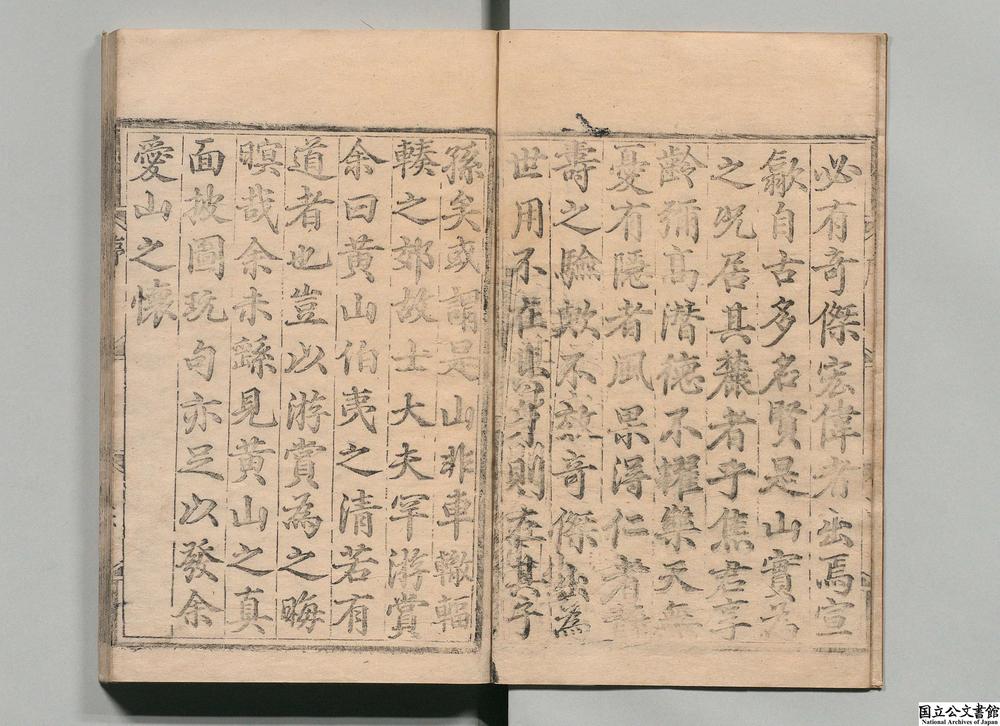 必有奇傑宏偉者出焉宣
歙自古多名賢是山實為
之况居其麓者乎焦君享
齡彌高潛德不耀樂天無
憂有隱者風果得仁者
壽之驗歟不效奇傑出為
世用不在其身則在其子
孫矣或謂是山非車轍輻
輳之郊故士大夫罕游賞
余曰黃山伯夷之清若有
道者也豈以游賞為之晦
暝哉余未繇見黃山之真
面披圖玩句亦足以發余
愛山之懷
序
国立公文書館
National Archives of Japan